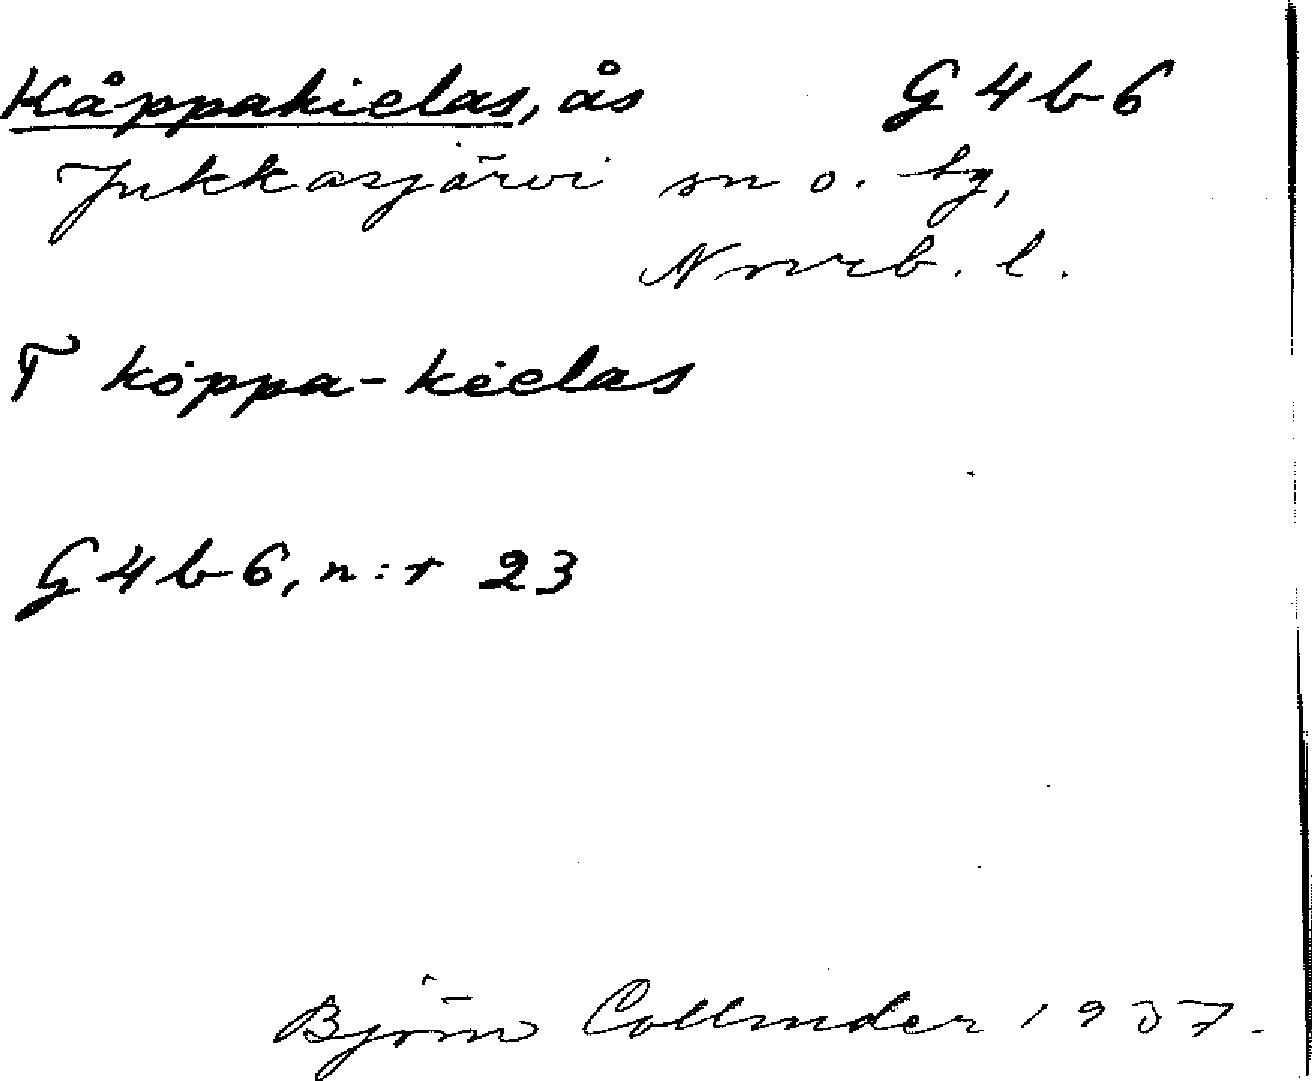 Kåppakielas, ås G4b6
Jukkasjärvi sn o. by,
Norrb. l.
T koppa-kielas
G4b6, n:r 23
Björn Collinder 1937.